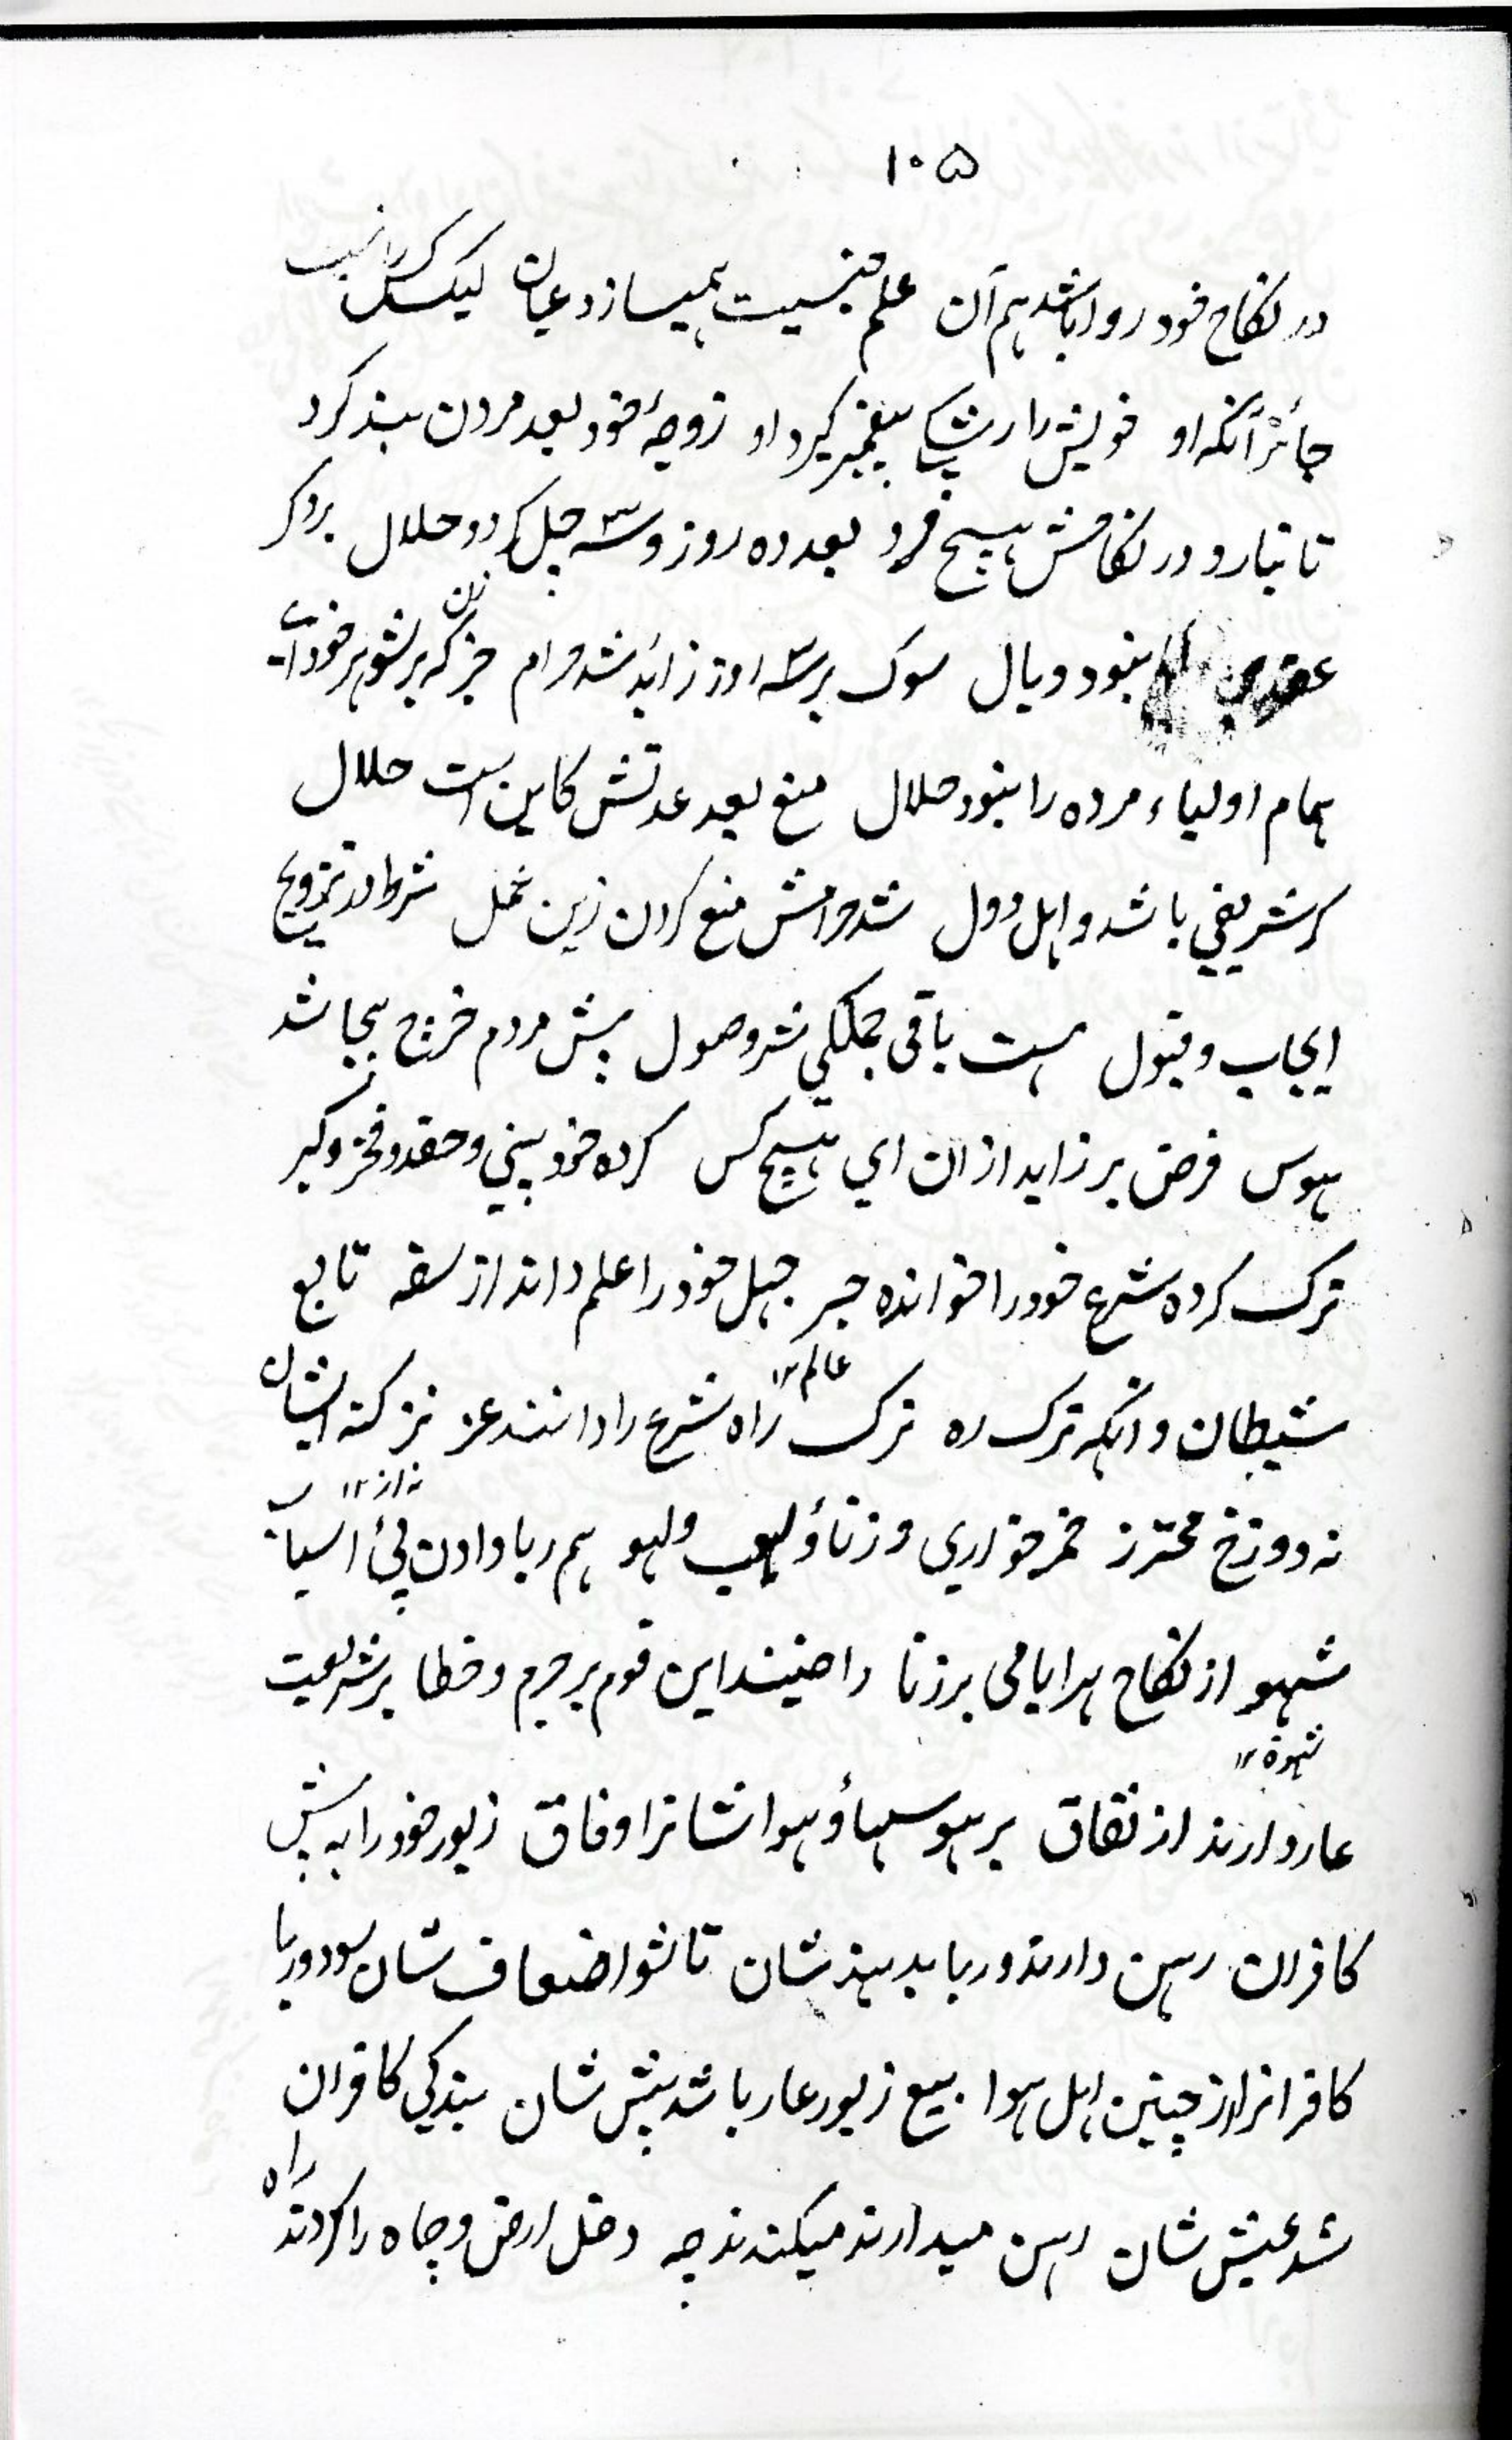 ۱۰۵
در نکاح خود روا باشد هم آن علم جنسیت همیسازد عیان لیک کس را نیست
جائز آنکه او خویش را رشک پیغمبر گیرد او زوجهٔ خود بعد مردن بند کرد
تا نیارد در نکاحش هیچ فرد بعد ده روز و سه چل گردد حلال بر دگر
عقدی نبود وبال سوک بر سه روز زائد شد حرام جز که زن بر شوهر خود
همام اولیاء مرده را نبود حلال منع بعد عدتش کاین است حلال
گر شریفی باشد و اهل دول شد حرامش منع کردن زین عمل شرط در تزویج
ایجاب و قبول هست باقی جملگی نشر و صول پیش مردم خرج بیجا شد
هوس فرض برزاید ازان ای هیچ کس کرده خود بینی و حقد و فخر و کبر
ترک کرده شرع خود را خوانده جبر جهل خود را علم داند از سفه تابع
شیطان و آنکه ترک ره ترک راه شرع را دانند عز نز کنه ایشان
عالم ۱۲
نه دوزخ محترز خمر خواری و زنا و لعب و لهو هم ربا دادن پئ اسباب
نه از ۱۲
شهو از نکاح بد ابا می بر زنا راضیند این قوم پر جرم و خطا بر شریعت
شهوة ۱۲
عار دارند از نفاق بر هوسها و هوا شانرا وفاق زیور خود را به پیش
کافران رهن دارند و ربا بدهند شان تا شو اضعاف شان سود و ربا
کافرانرا از چنین اهل هوا بیع زیور عار باشد پیش شان بندگی کافران
شد عیش شان رهن میدارند میکنند چه دخل ارض و چاه را کردند راه